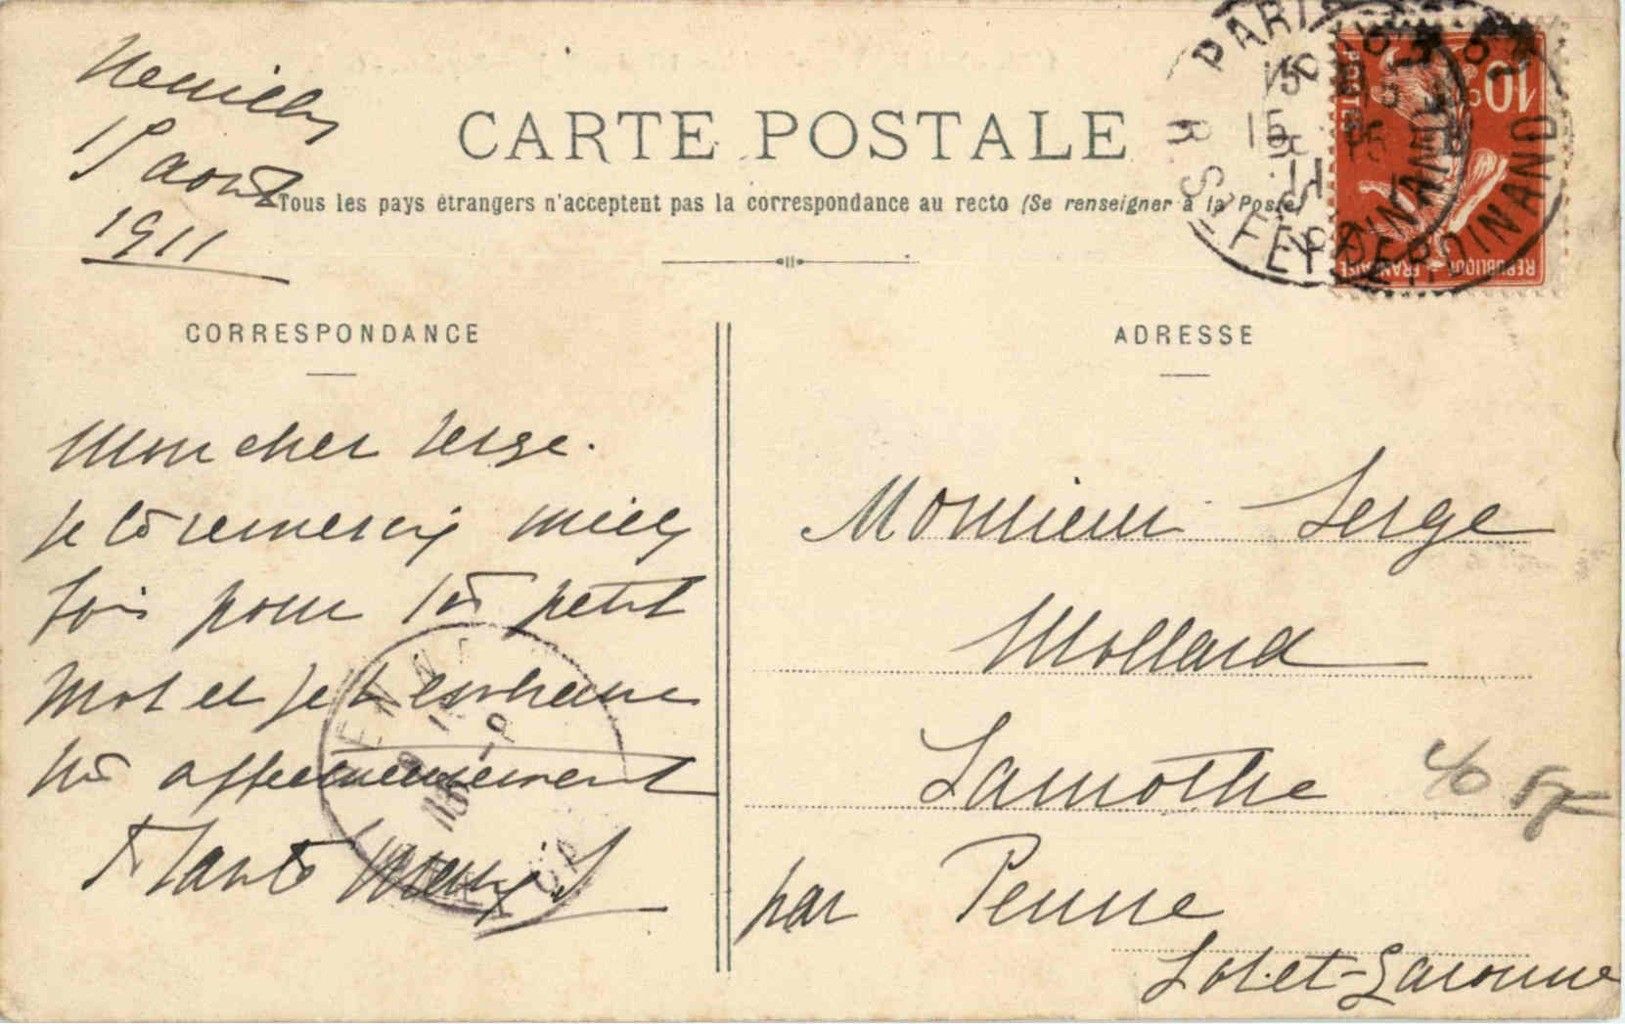 Neuilly
15 aout
1911
CARTE POSTALE
Tous les pays étrangers n'acceptent pas la correspondance au recto (Se renseigner à la Poste)
CORRESPONDANCE
Mon cher Serge.
Je te remercie mille
fois pour ta petit
mot et je t'embrasse
très affectueusement
Ta Tante
ADRESSE
Monsieur Serge
Mollard
Lamothe
par Penne
Lot-et-Garonne
PARIS
15
15
11
R. ST FERDINAND
10c
POSTES
REPUBLIQUE FRANÇAISE
PENNE